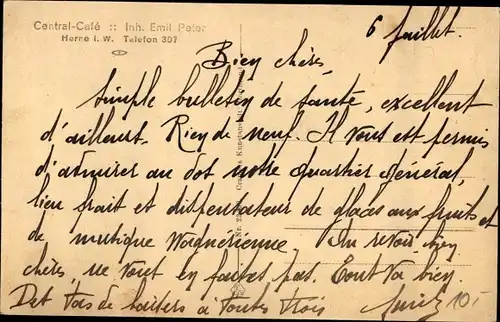 Central-Café :: Inh. Emil Peter
Herne i. W. Telefon 307
6 Juillet.
Bien chères
Simple bulletin de santé, excellent
d'ailleurs. Rien de neuf. Il vous est permis
d'admirer au dos notre quartier général,
lieu frais et dispensateur de glaces aux fruits et
de musique Wagnerienne. Au revoir bien
chères, ne vous en faites pas. Tout va bien.
Des tas de baisers à toutes trois
10.-